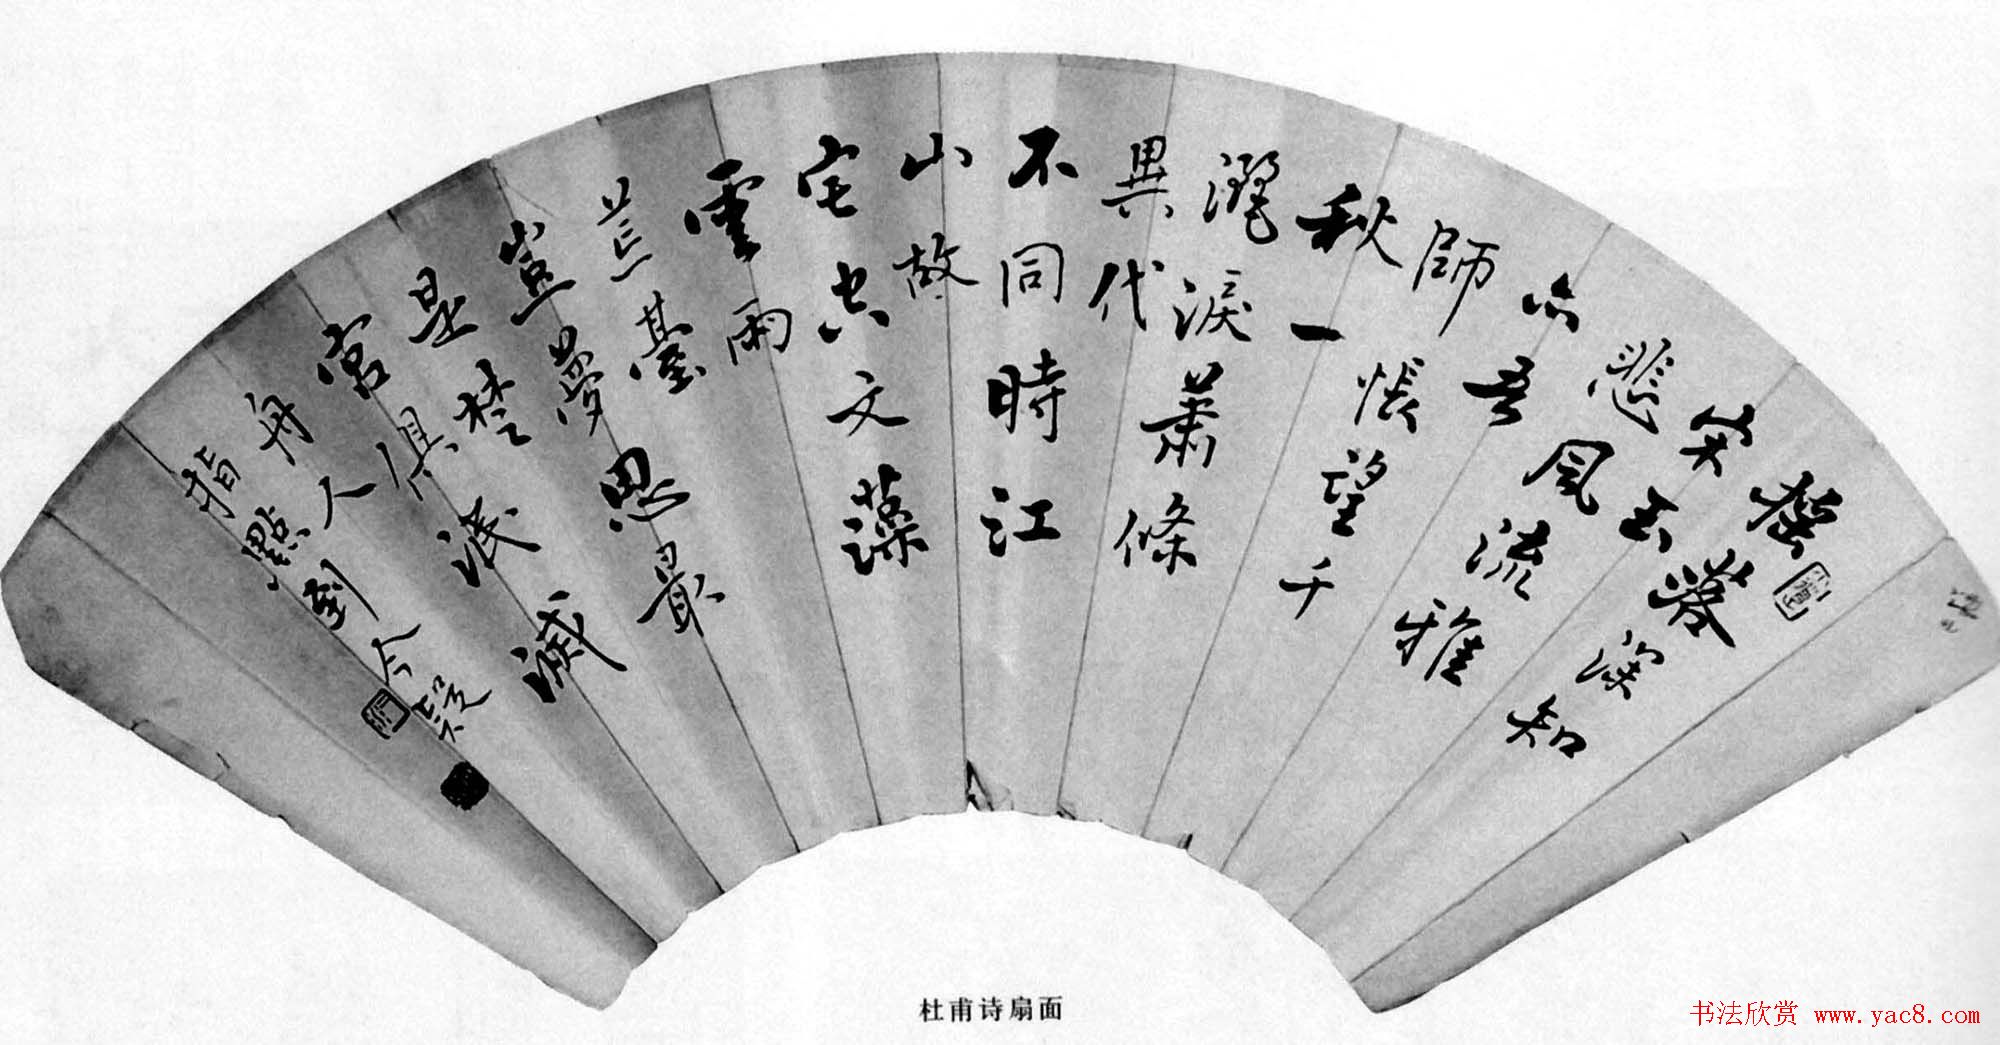 搖落深知
宋玉
悲風流雅
亦吾
師悵望千
秋一
灑淚蕭條
異代
不同時江
山故
宅空文藻
雲雨
荒臺
豈夢思最
是楚
宮俱泯滅
舟人
指點到今疑
杜甫诗扇面
书法欣赏 www.yac8.com